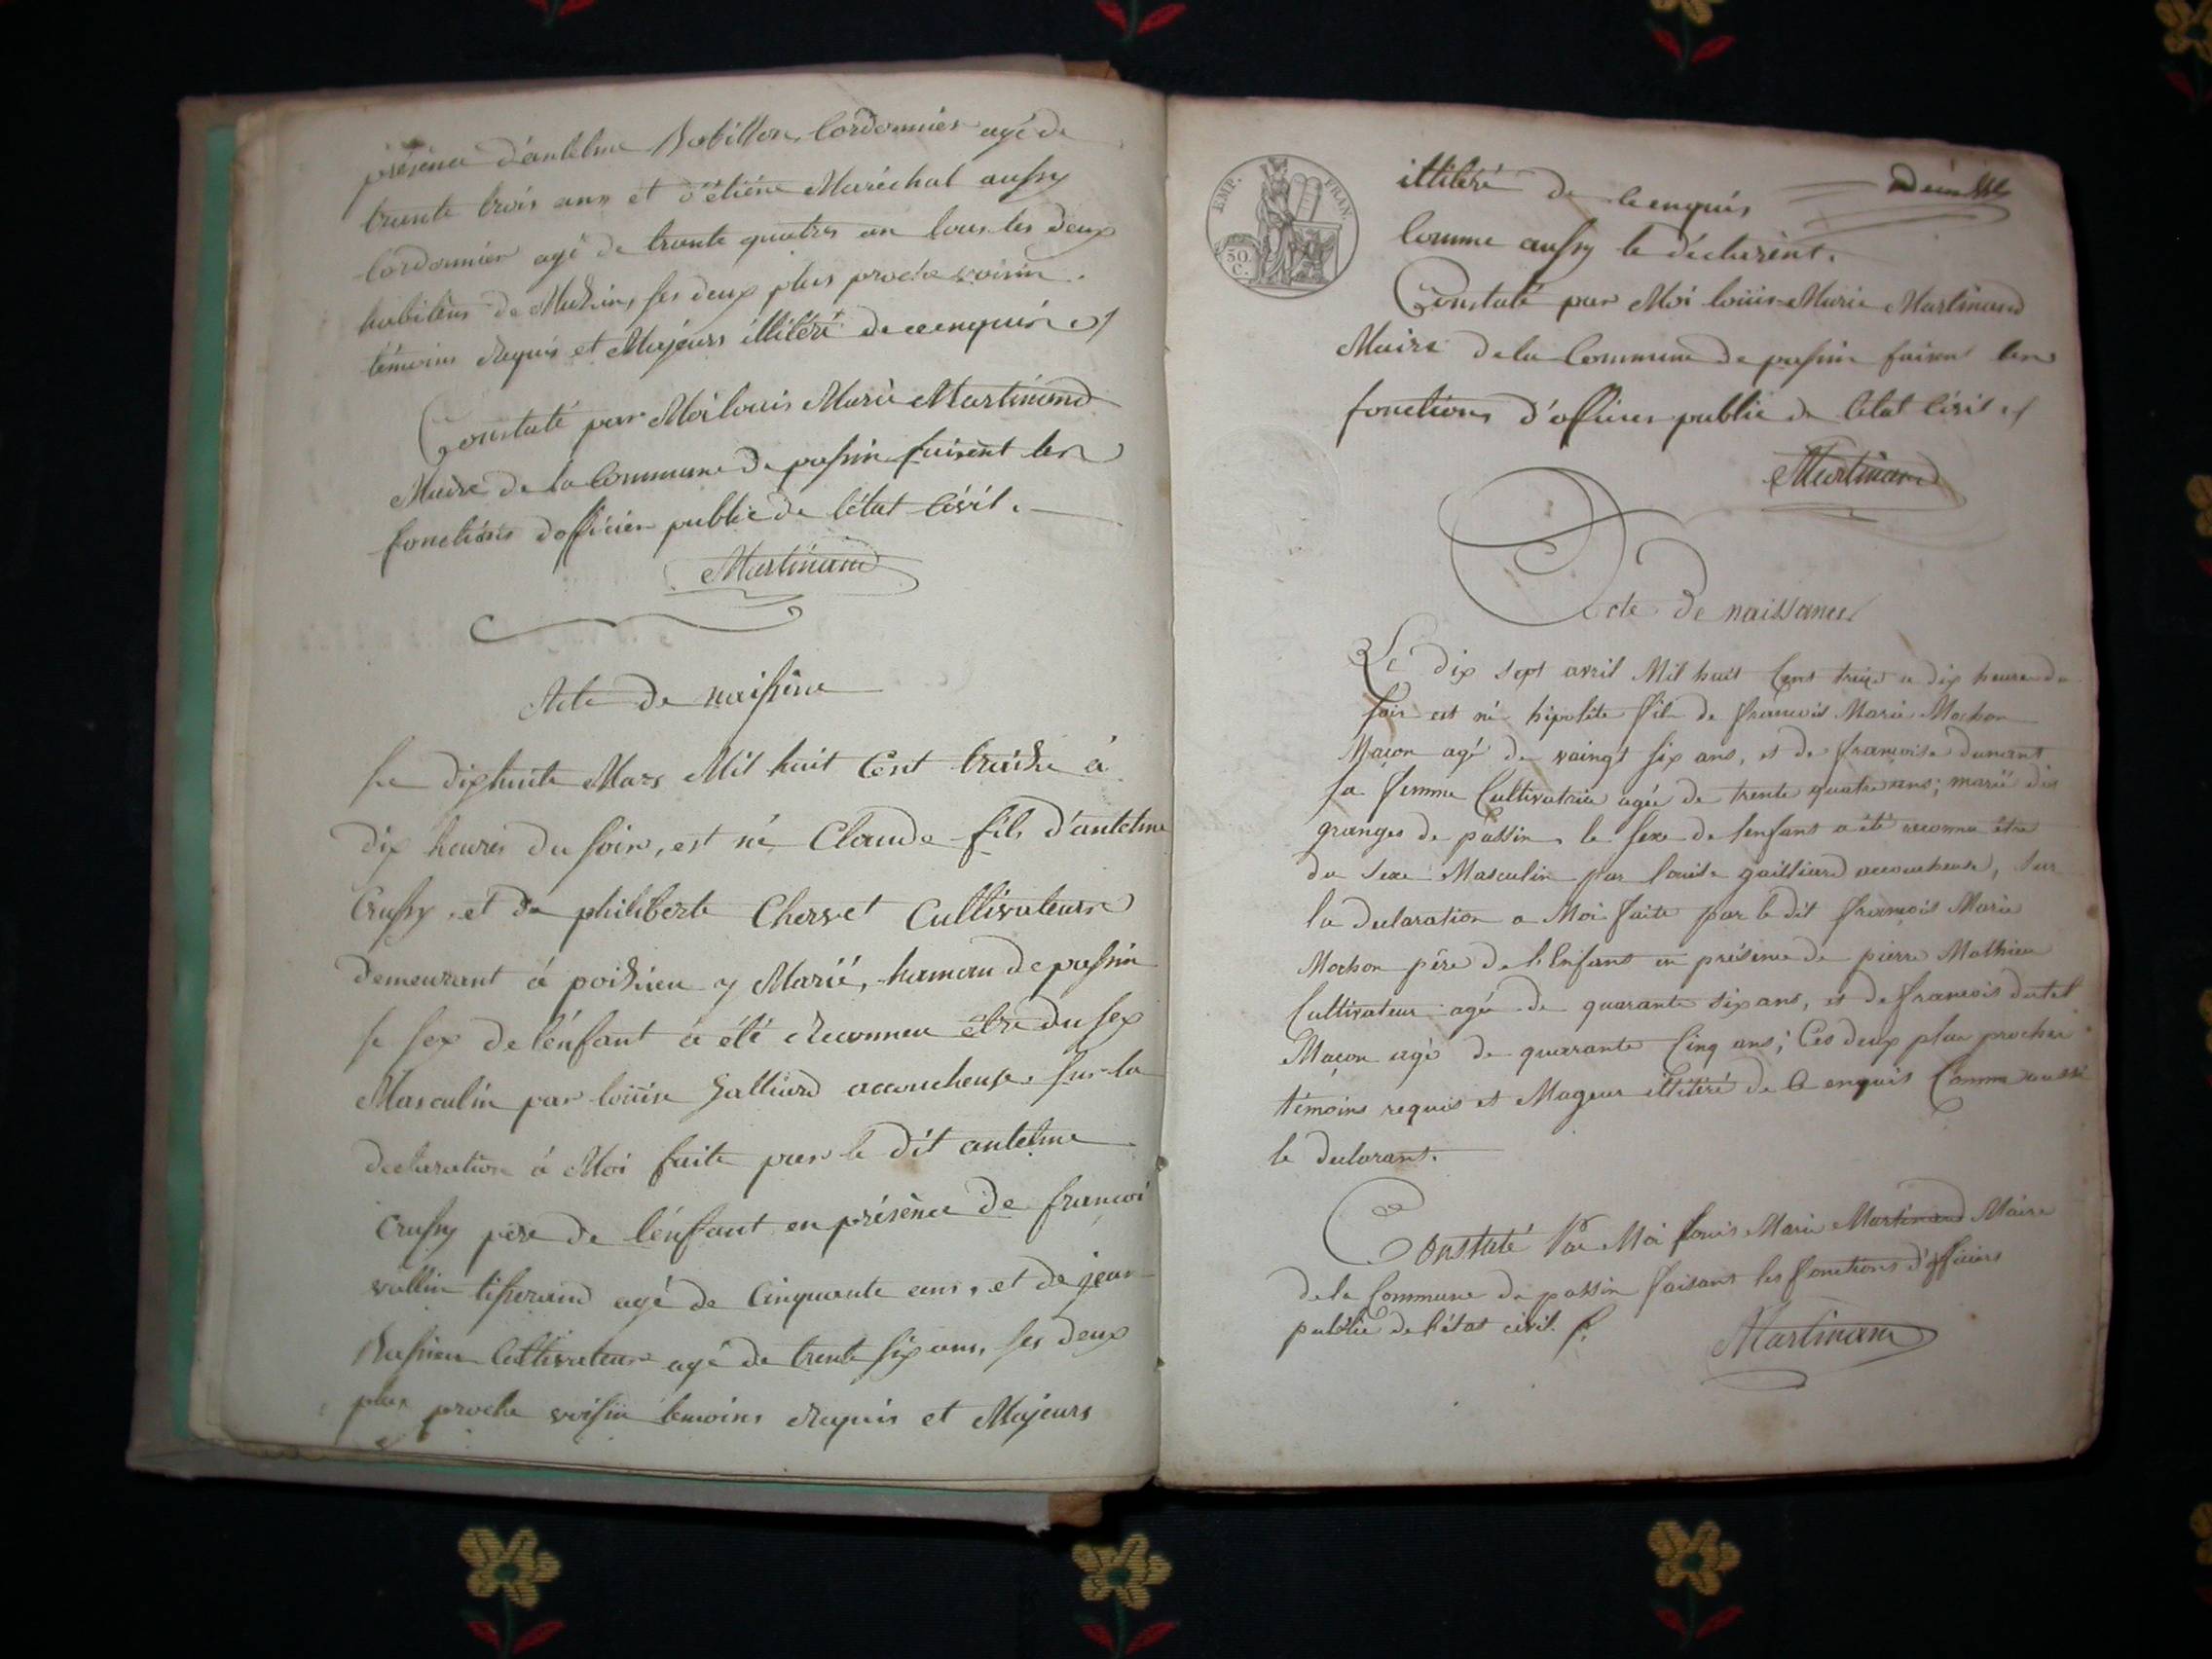 présence d'antelme Babillon, Cordonnier agé de
trente trois ans et d'étiéne Maréchal aussy
Cordonnier agé de trante quatres an tous les deux
habitens de Muzin, ses deux plus proche voisin
témoins Requis et Majeurs illitéré de ce enquis
Constaté par Moi louis Marie Martinand
Maire de la Commune de passin faisent les
fonctions d'officier public de l'état Civil.
Martinand
Acte de naisséne
Le dixhuite Mars Mil huit Cent traize à
dix heures du soir, est né Claude fils d'antelme
Crussy, et de philiberte Chervet Cultivateurs
demeurant à poizieu y Marié, hamau de passin
le sex de l'énfant à été Reconneu être du sex
Masculin par louïse Galliard accoucheuse sur la
declaration à Moi faite par le dit antelme
Crussy pere de l'énfant en présènce de françoi
vallin tisserand agé de Cinquante ans, et de jean
Bassieu Cultivateur agé de trente six ans, ses deux
plus proche voisin temoins Requis et Majeurs
EMP. FRAN.
50 C.
illitéré de ce enquis
Comme aussy le déclarent.
Constaté par Moi loüis Marie Martinand
Maire de la Commune de passin faisent les
fonctions d'officier public de l'état Civil
Martinand
Acte de naissance
Le dix sept avril Mil huit Cent treize a dix heures du
soir est né hipolite fils de françois Marie Mochon
Maçon agé de vaingt six ans, et de françoise dunant
sa femme Cultivatrice agée de trente quatre ans; marié des
granges de passin, le sexe de l'enfant a été reconnu être
du sexe Masculin par louise gailliard accoucheuse, sur
la declaration a Moi faite par le dit françois Marie
Mochon pére de l'Enfant en présence de pierre Mathieu
Cultivateur agé de quarante six ans, et de francois dutel
Maçon agé de quarante Cinq ans; Ces deux plus proches
témoins requis et Mageur illitéré de Ce enquis Comme aussi
le declarant.
Constaté Par Moi Louis Marie Martinand Maire
de la Commune de passin faisant les fonctions d'officier
public de l'état civil.
Martinand